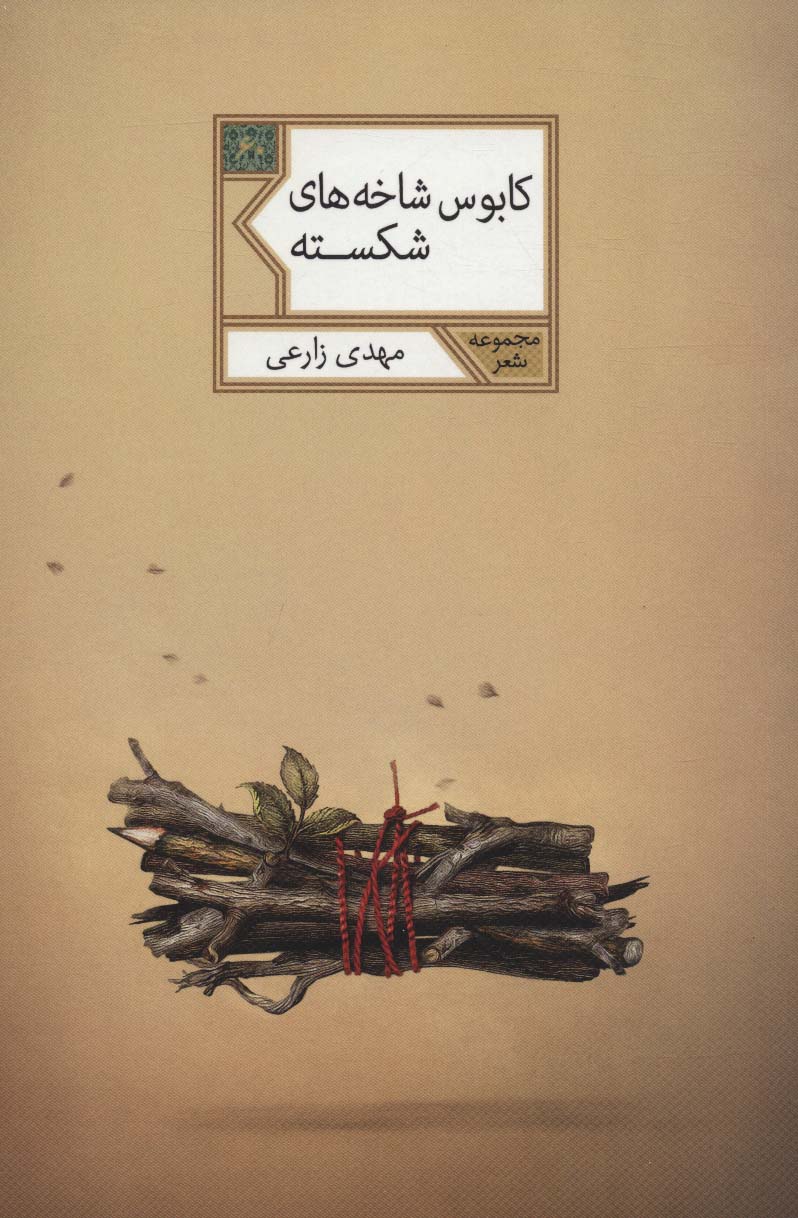 کابوس شاخه‌های
شکسته
مجموعه
شعر
مهدی زارعی